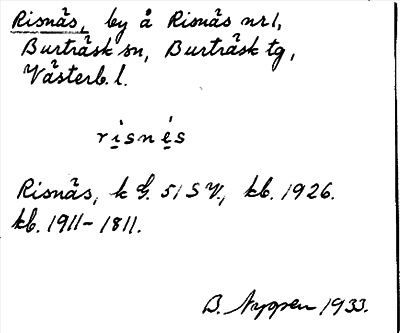 Risnäs, by å Risnäs nr 1,
Burträsk sn, Burträsk tg,
Västerb. l.
risnés
Risnäs, k G. 51 S V., kb. 1926.
kb. 1911-1811.
B. Nygren 1933.